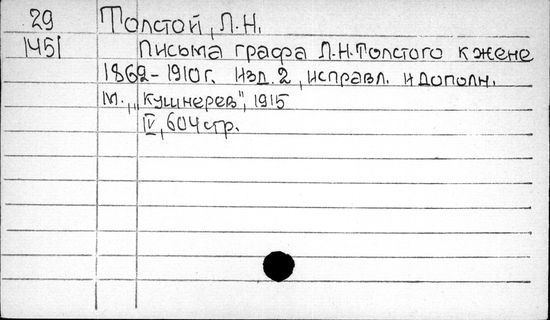 29 Толстой, Л.Н.
1451 Письма графа Л.Н.Толстого к жене
1862-1910г. Изд. 2, исправл. и дополн.
М., „Кушнерев", 1915
IV, 604 стр.